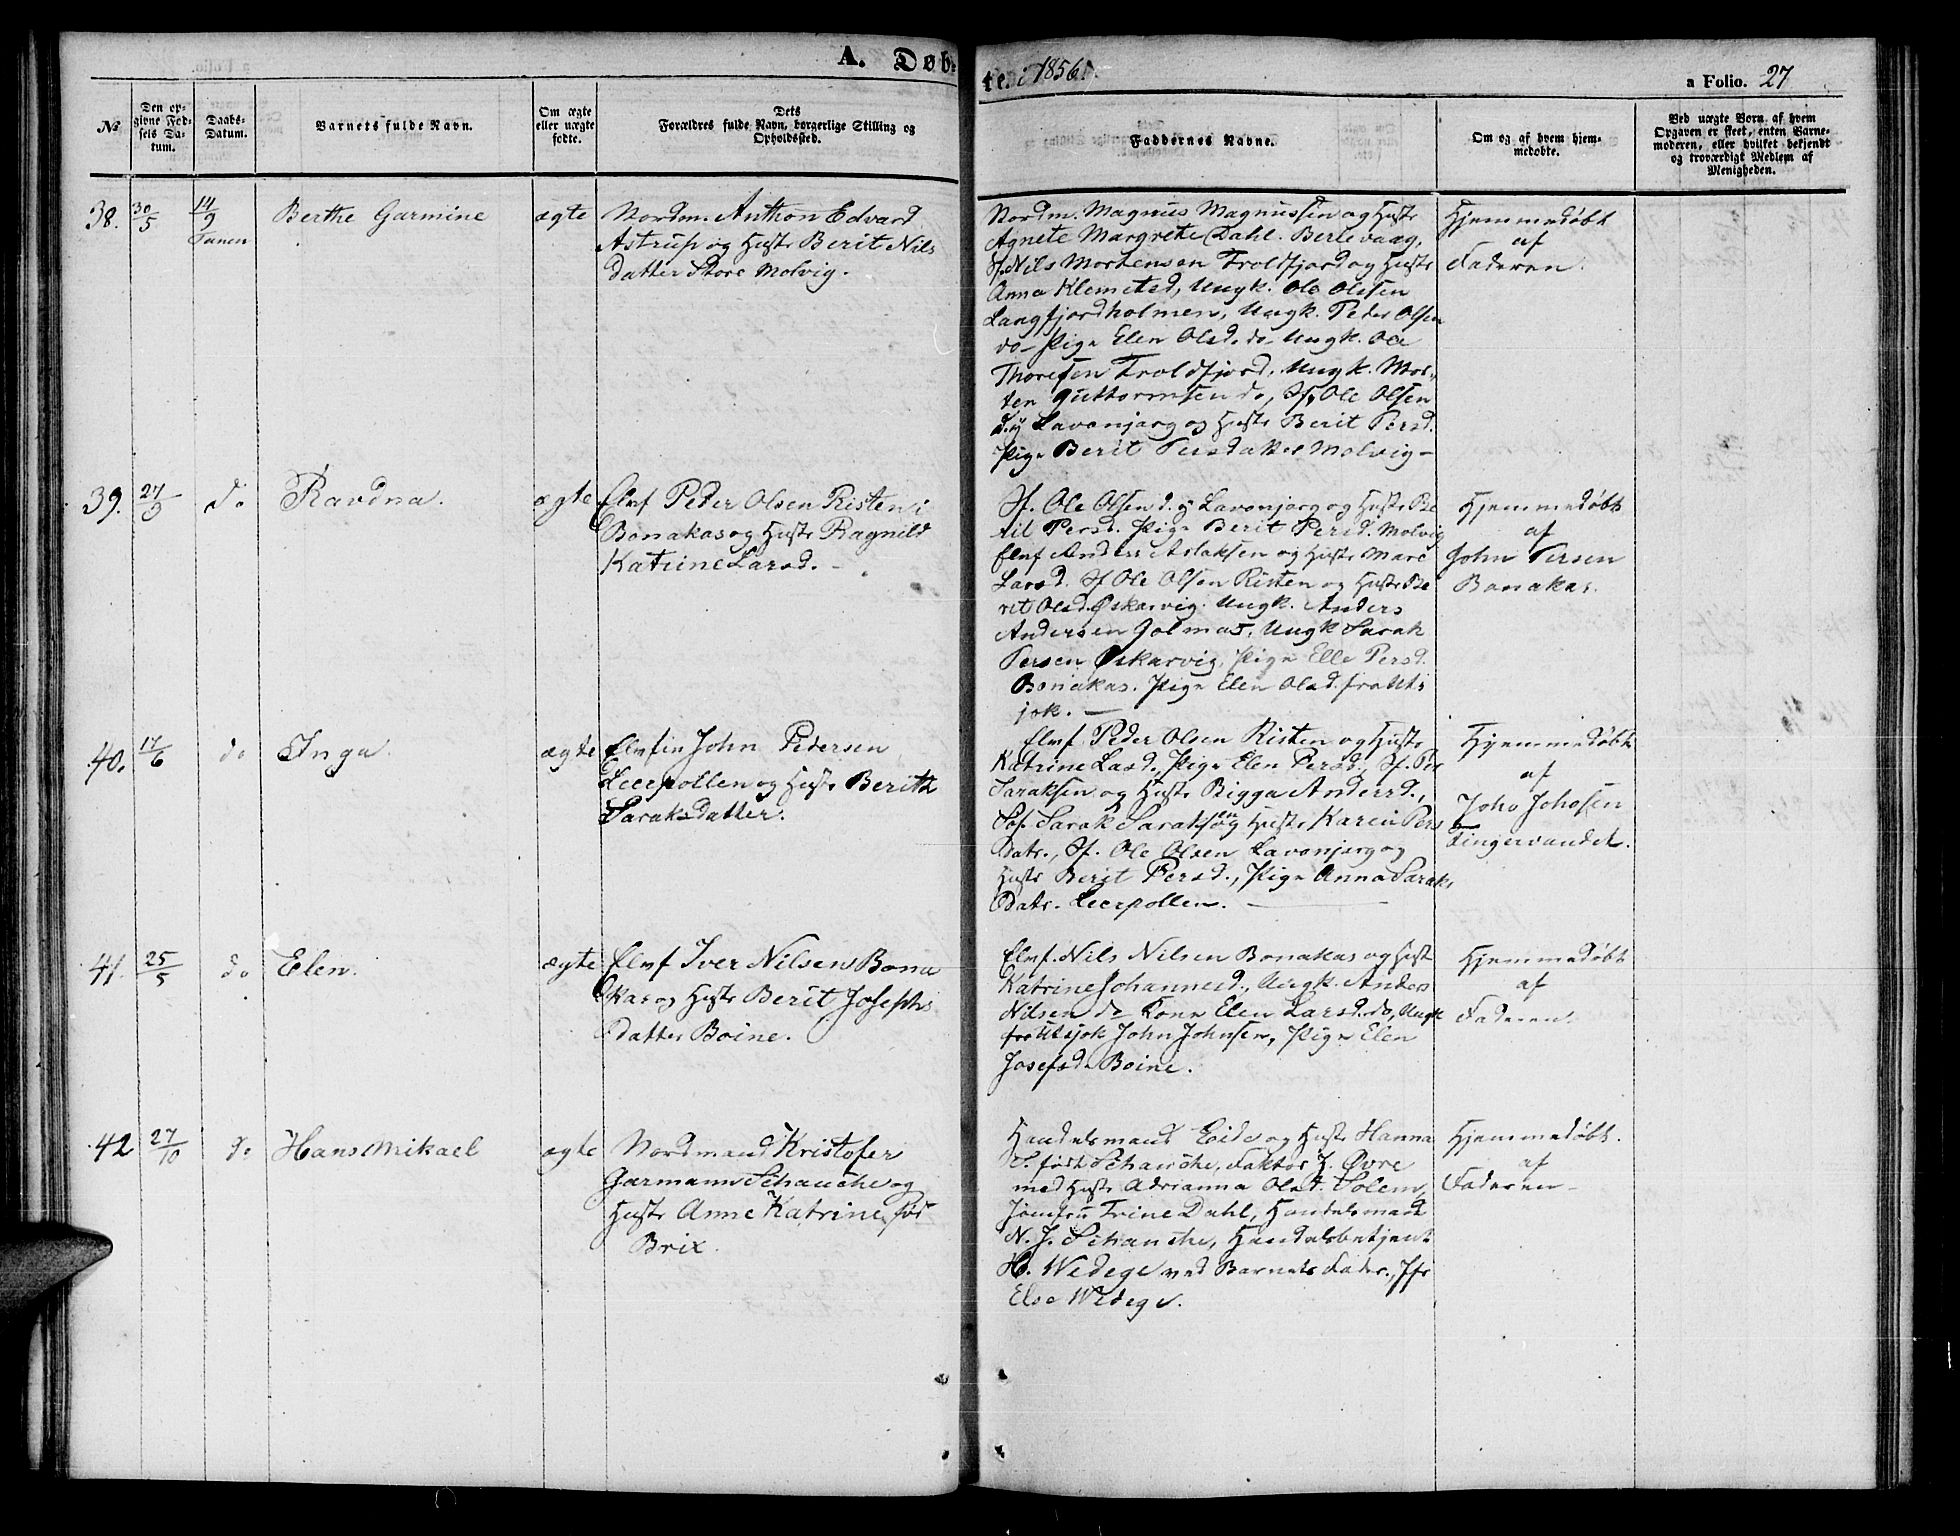 A. Døb-
te i 1856.
a Folio. 27
№
Den op-
givne Fød-
sels Da-
tum.
Daabs-
Datum.
Barnets fulde Navn.
Om ægte
eller uægte
fødte.
Dets
Forældres fulde Navn, borgerlige Stilling og
Opholdssted.
Faddernes Navne.
Om og af hvem hjem-
medøbte.
Ved uægte Børn af hvem
Opgaven er skeet, enten Barne-
moderen, eller hvilket bekjendt
og troværdigt Medlem af
Menigheden.
38. 30/5 14/9 Tanen Berthe Garmine ægte
Nordm. Anthon Edvard
Astrup og Hustr Berit Nils
datter Store Molvig.
Nordm. Magnus Magnussen og Hustr
Agnete Margrete Dahl. Berlevaag,
Sf. Nils Mortensen Troldfjord og Hustr
Anna Klemetsd, Ungk. Ole Olssen
Langfjordholmen, Ungk. Peder Olsen
do – Pige Elen Olsd. do – Ungk. Ole
Thoresen Troldfjord, Ungk. Mor-
ten Guttormsen do, Sf. Ole Olsen
d.y Lavonjarg og Hustr Berit Persd.
Pige Berit Persdatter Molvig –
Hjemmedøbt
af
Faderen.
39. 27/9 do Ravdna. ægte
Elvf Peder Olsen Risten i
Bonakas og Hustr Ragnild
Katrine Larsd. –
Sf. Ole Olsen d.y Lavonjarg og Hustr Be
rit Persd. Pige Berit Persd. Molvig
Elvf Anders Aslaksen og Hustr Mare
Larsd. Sf Ole Olsen Risten og Hustr Be
rit Olsd. Øskarvig. Ungk. Anders
Andersen Golmas, Ungk Sarak
Persen Øskarvig, Pige Elle Persd.
Bonakas. Pige Elen Olsd. fra Uts
jok. –
Hjemmedøbt
af
John Persen
Bonakas.
40. 17/6 do Inga. ægte
Elvfin John Pedersen
Leerpollen og Hustr Berith
Saraksdatter.
Elvf. Peder Olsen Risten og Hustr
Katrine Lasd., Pige Elen Persd., Sf. Per
Saraksen og Hustr Bigga Andersd.,
Søf. Sarak Saraksen og Hustr Karen Pers
Datr., Sf. Ole Olsen Lavonjarg og
Hustr Berit Persd., Pige Anna Saraks
Datr. Leerpollen.
Hjemmedøbt
af
John Johnsen
Fingervandet.
41. 25/5 do Elen. ægte
Elvf Iver Nilsen Bona
kas og Hustr Berit Josephs
datter Boine.
Elvf. Nils Nilsen Bonakas og Hust
Katrine Johannesd., Ungk. Anders
Nilsen do Kone Elen Larsd. do, Ungk
fra Utsjok John Johnsen, Pige Elen
Josefsd. Boine.
Hjemmedøbt
af
Faderen.
42 27/10 do Hans Mikael ægte
Nordmand Kristofer
Garmann Schanche og
Hustr Anne Katrine fød
Brix.
Handelsmand Eide og Hustr Hanna
S. født Schanche, Faktor J. Øvre
med Hustr Adrianna Olsd. Solem,
Jomfru Trine Dahl, Handelsmand
N. J. Schanche, Handelsbetjent
H. Wedege ved Barnets Fader., Jfr
Else Wedege.
Hjemmedøbt.
af
Faderen –